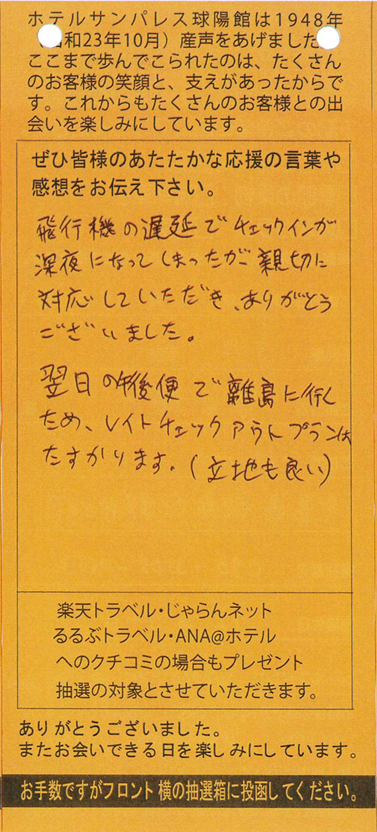 ホテルサンパレス球陽館は1948年
和23年10月）産声をあげました
ここまで歩んでこられたのは、たくさん
のお客様の笑顔と、支えがあったからで
す。これからもたくさんのお客様との出
会いを楽しみにしています。
ぜひ皆様のあたたかな応援の言葉や
感想をお伝え下さい。
飛行機の遅延でチェックインが
深夜になってしまったが親切に
対応していただき、ありがとう
ございました。
翌日の午後便で離島に行く
ため、レイトチェックアウトプランは
たすかります。(立地も良い)
楽天トラベル・じゃらんネット
るるぶトラベル・ANA@ホテル
へのクチコミの場合もプレゼント
抽選の対象とさせていただきます。
ありがとうございました。
またお会いできる日を楽しみにしています。
お手数ですがフロント横の抽選箱に投函してください。